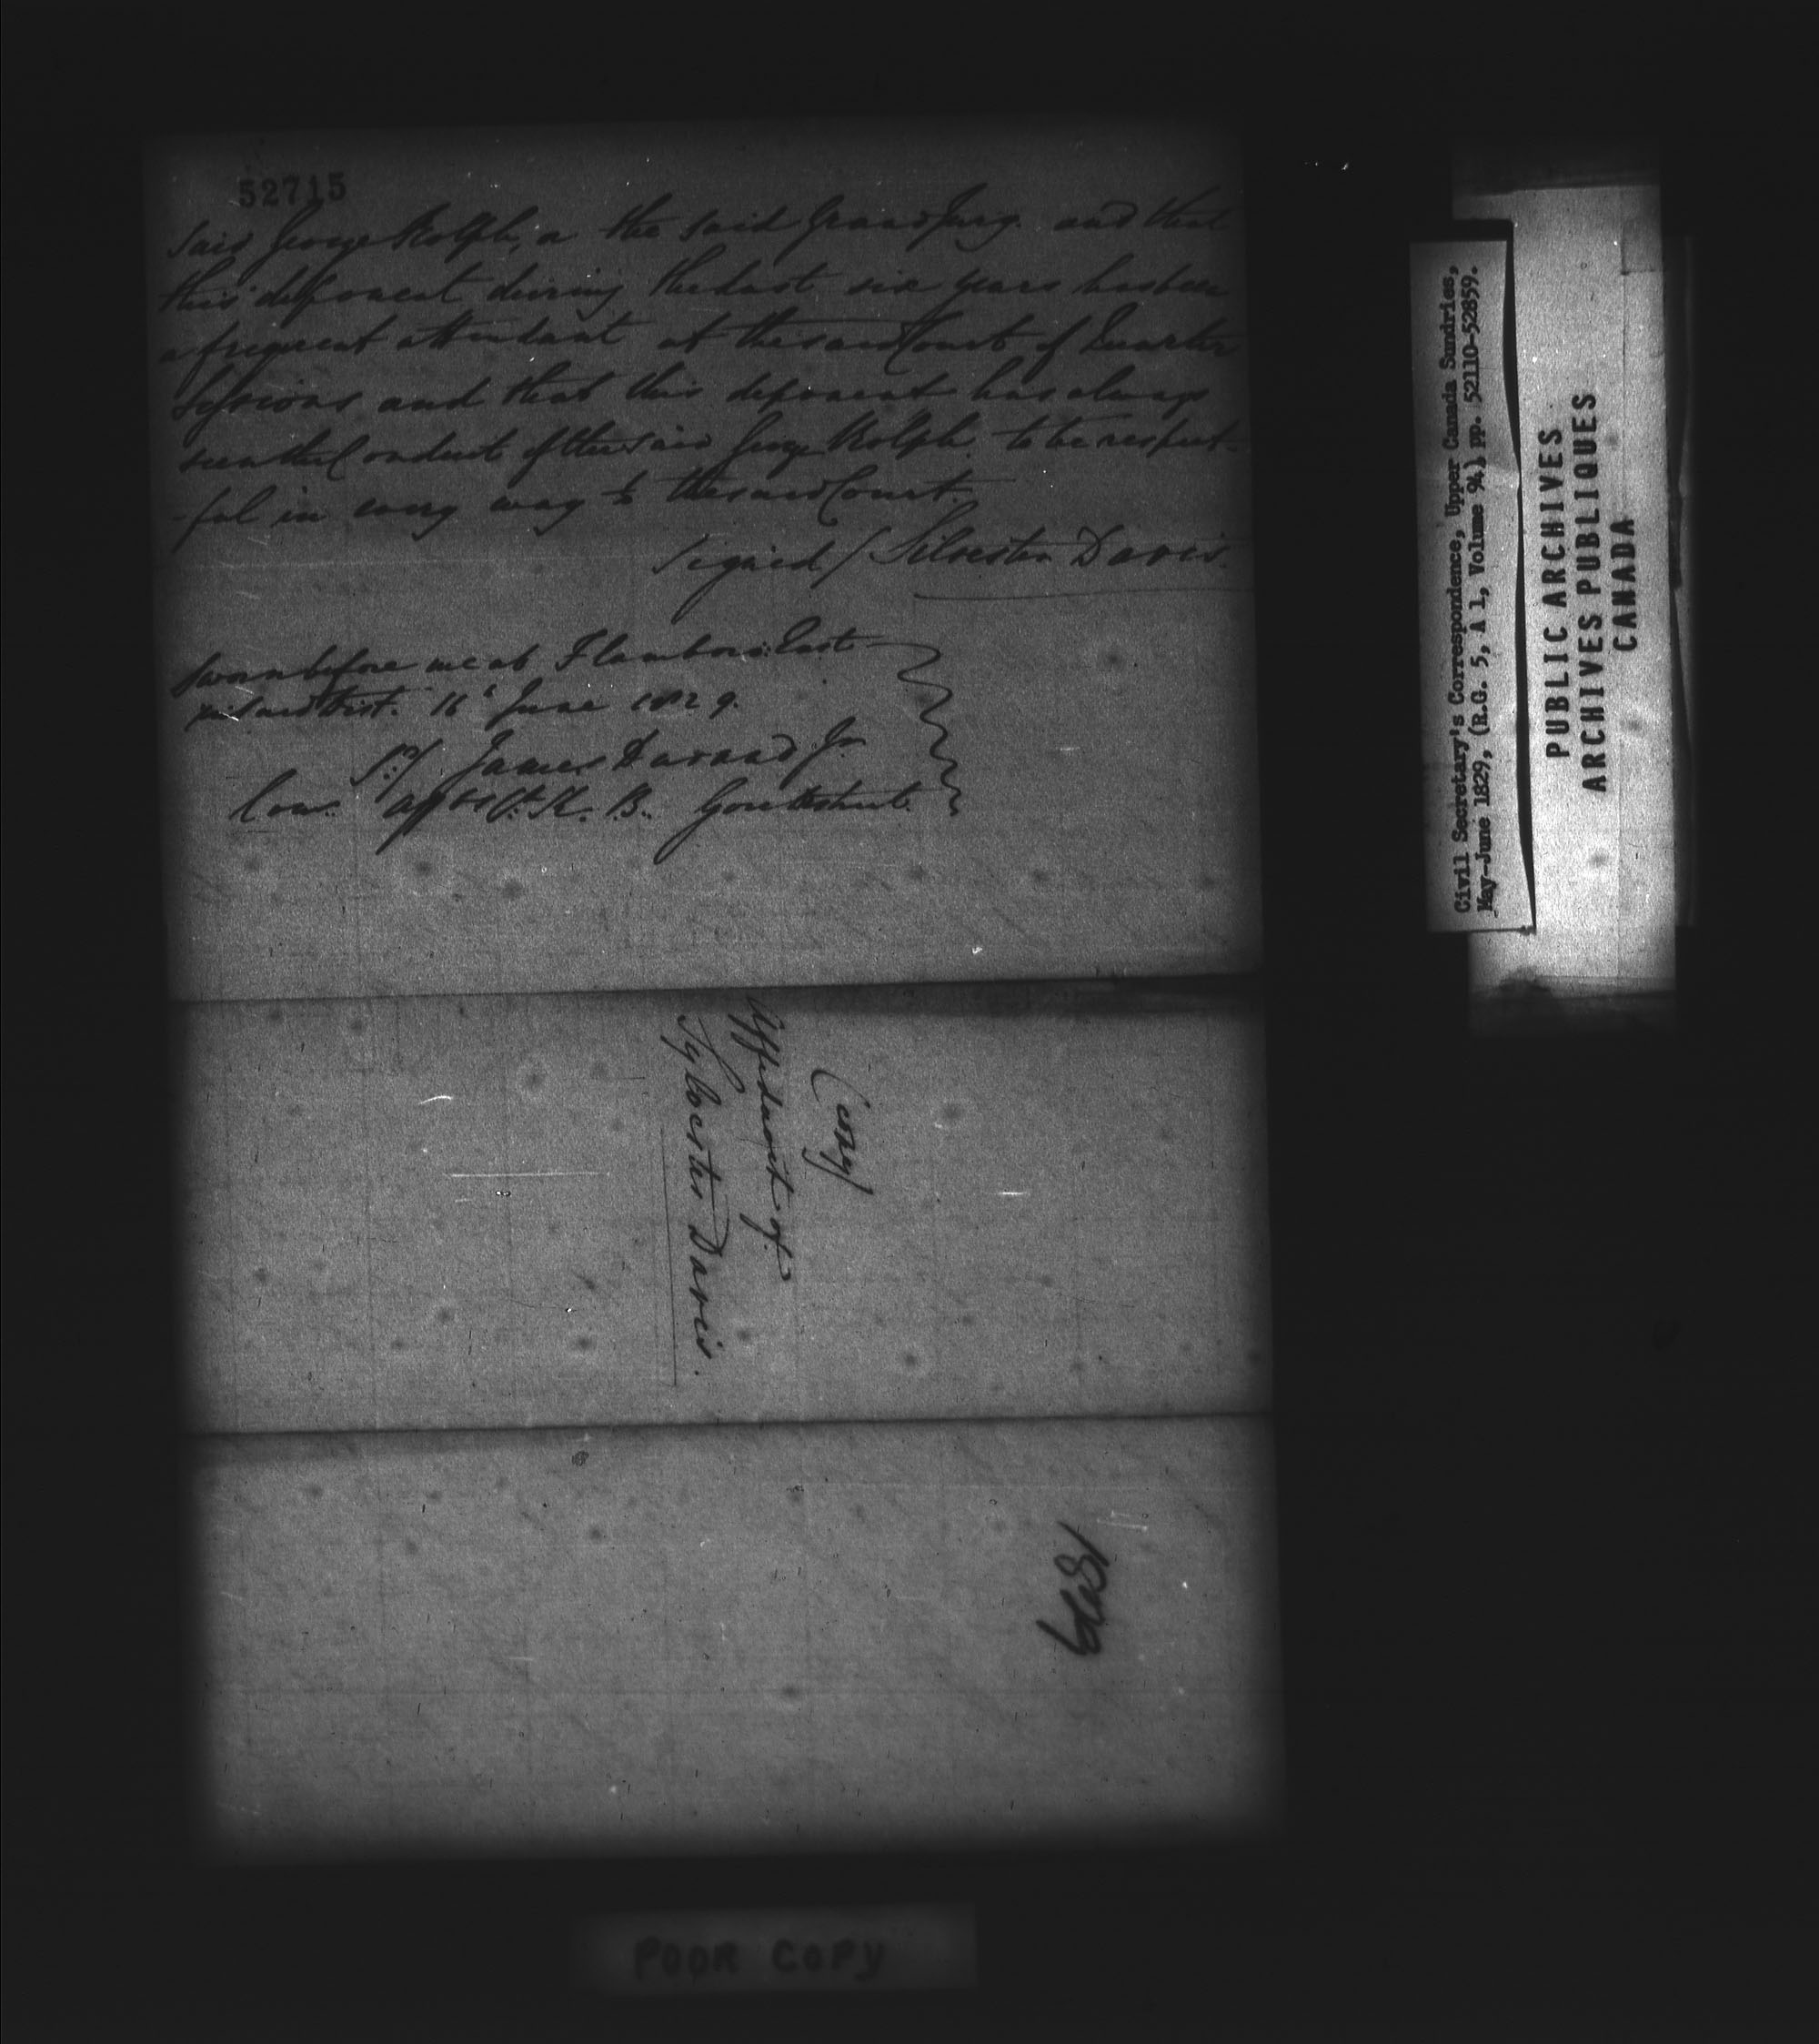 52715
said George Rolph, a the said Grand Jury. and that
this deponent during the last six years has been
a frequent attendant at the said Court of Quarter
Sessions, and that this deponent has always
seen the Conduct of the said George Rolph to be respect-
-ful in every way to the said Court.
Signed / Silvester Davis.
Sworn before me at Flamboro: East
said Dist. 16 June 1829.
James Durand Jr
Com. affts Ct. K. B. Gore District
(Copy)
Affidavit of
Sylvester Davis.
Civil Secretary's Correspondence, Upper Canada Sundries,
May-June 1829, (R.G. 5, A 1, Volume 94), pp. 52110-52859.
PUBLIC ARCHIVES
ARCHIVES PUBLIQUES
CANADA
POOR COPY